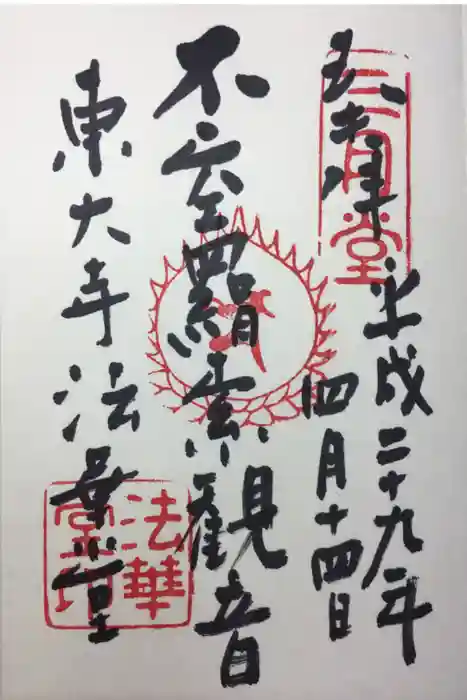 三月堂
平成二十九年
四月十四日
不空羂索観音
東大寺法華堂
法華堂印